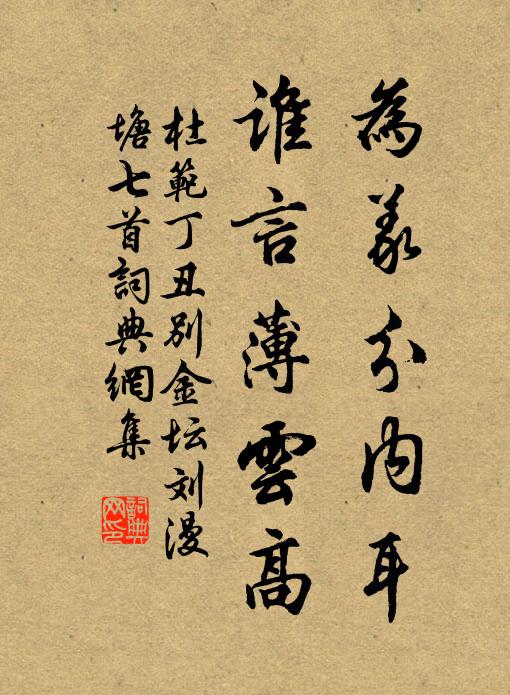 為義分内耳
誰言薄雲高
杜範丁丑別金坛刘漫
塘七首詞典網集
詞典网印